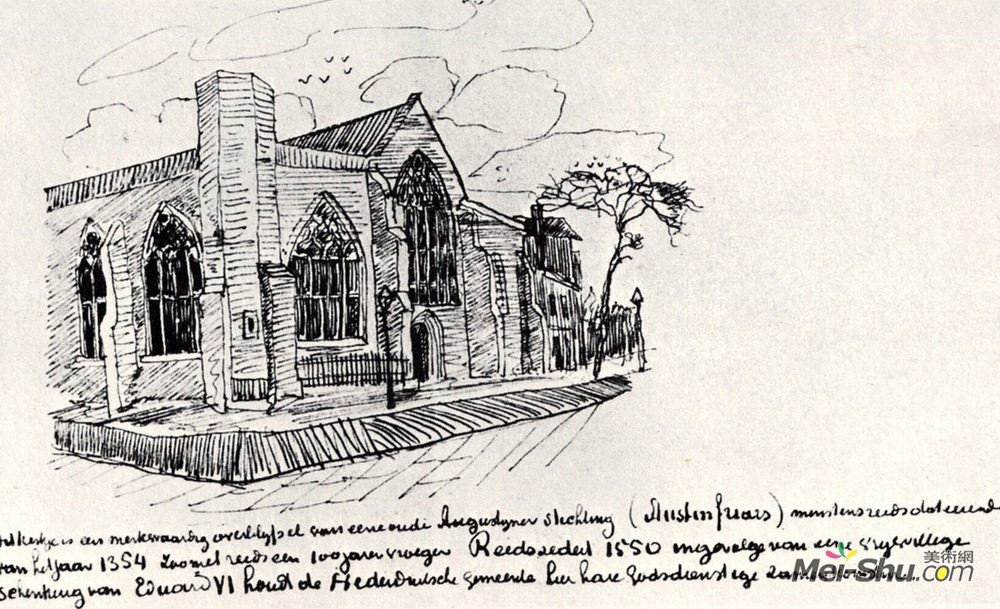 Het kerkje is een merkwaardig overblijfsel van eene oude Augustyner stichting (Austin friars) minstens reeds dateerende
van het jaar 1354 zoo niet reeds een 100 jaren vroeger Reeds sedert 1550 ingevolge van eene vrijwillige
schenking van Eduard VI houdt de Nederduitsche gemeente hier hare godsdienstige
美術網
Mei-Shu.com